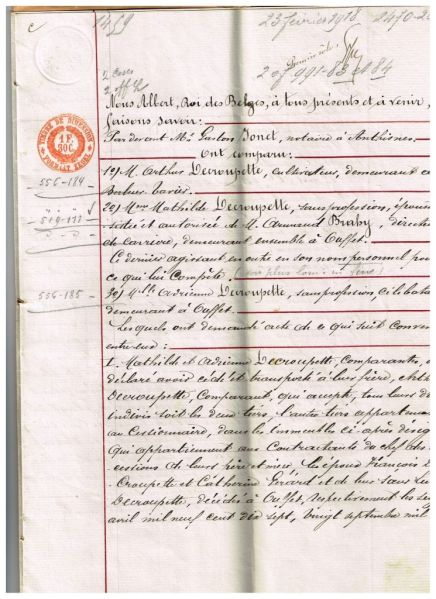 1459
23 février 1918
2470-2
2 of 991-83 et 84
Nous Albert, Roi des Belges, à tous présents et à venir,
faisons savoir:
Par devant Me Gaston Jonet, notaire à Anthisnes
Ont comparu:
TIMBRE DE DIMENSION
1 F
50C.
FORMAT
1º) M. Arthur Decroupette, cultivateur, demeurant
556-184
2º) Mme Mathilde Decroupette, sans profession, épouse
et autorisée de M. Armand Braby,
de carrière, demeurant ensemble à Ouffet.
Ce dernier agissant en outre en son nom personnel pour
ce qui lui compète
556-185
3º) Melle Adrienne Decroupette, sans profession, célibataire
demeurant à Ouffet.
Lesquels ont demandé acte de ce qui suit convenu
entre eux:
I. Mathilde et Adrienne Decroupette, comparantes,
déclaré avoir cédé et transporté à leur frère,
Decroupette, comparant, qui accepte, tous leurs
indivis soit les deux tiers, l'autre tiers appartenant
au cessionnaire, dans les immeubles ci-après
qui appartiennent aux contractants du chef des
cessions de leurs père et mère, les époux François
Croupette et Catherine Gérard et de leur sœur
Decroupette, décédés à Ouffet, respectivement les
avril mil neuf cent dix sept, vingt septembre mil